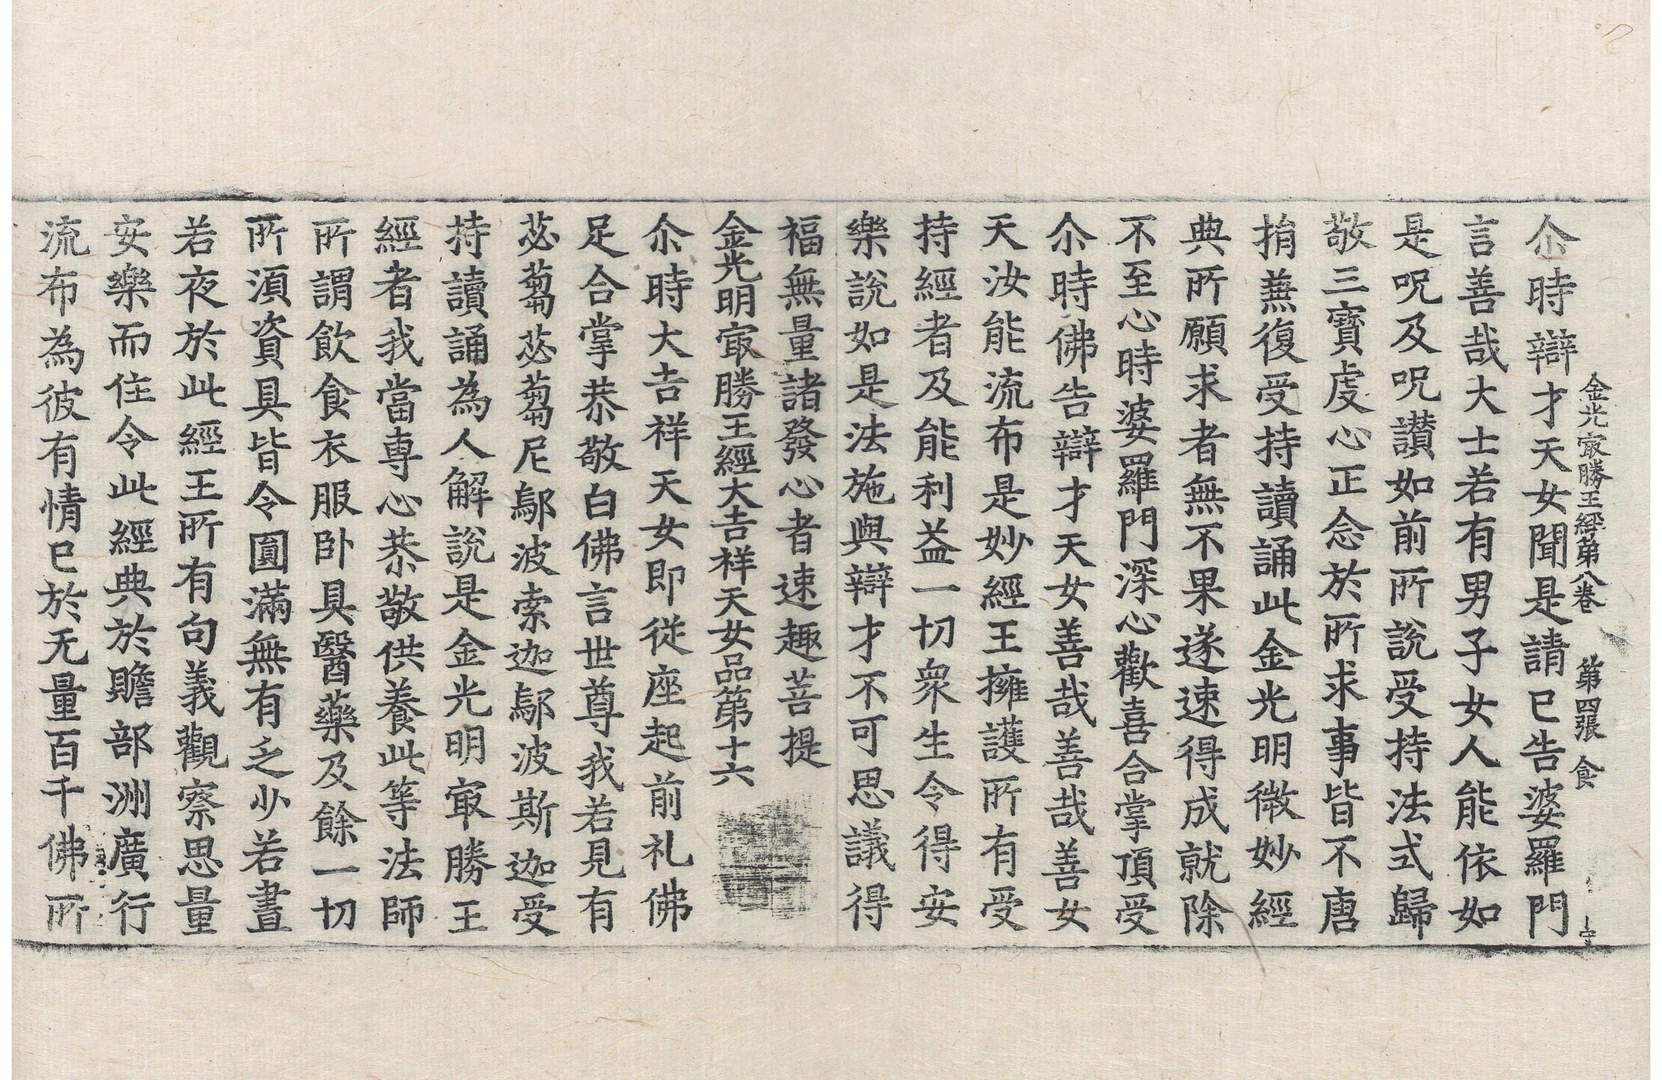 金光㝡勝王經第八卷　第四張　食
尒時辯才天女聞是請已告婆羅門
言善哉大士若有男子女人能依如
是呪及呪讃如前所説受持法式歸
敬三寶虔心正念於所求事皆不唐
捐兼復受持讀誦此金光明微妙經
典所願求者無不果遂速得成就除
不至心時婆羅門深心歡喜合掌頂受
尒時佛告辯才天女善哉善哉善女
天汝能流布是妙經王擁護所有受
持經者及能利益一切衆生令得安
樂説如是法施與辯才不可思議得
福無量諸發心者速趣菩提
金光明㝡勝王經大吉祥天女品第十六
尒時大吉祥天女即從座起前礼佛
足合掌恭敬白佛言世尊我若見有
苾蒭苾蒭尼鄔波索迦鄔波斯迦受
持讀誦為人解説是金光明㝡勝王
經者我當專心恭敬供養此等法師
所謂飲食衣服卧具醫藥及餘一切
所湏資具皆令圓滿無有乏少若晝
若夜於此經王所有句義觀察思量
安樂而住令此經典於贍部洲廣行
流布為彼有情已於无量百千佛所